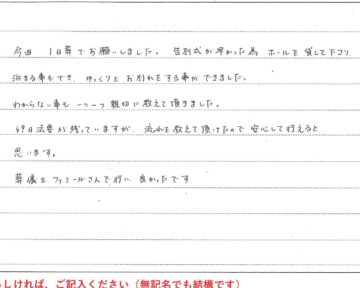 今回 1日葬でお願いしました。告別式が早かった為 ホールを貸して下さり
泊まる事もでき、ゆっくりと お別れをする事ができました。
わからない事も 一つ一つ 親切に教えて頂きました。
49日法要が残っていますが、流れを教えて頂けたので 安心して行えると
思います。
葬儀を ファミールさんで行い 良かったです
しければ、ご記入ください（無記名でも結構です）